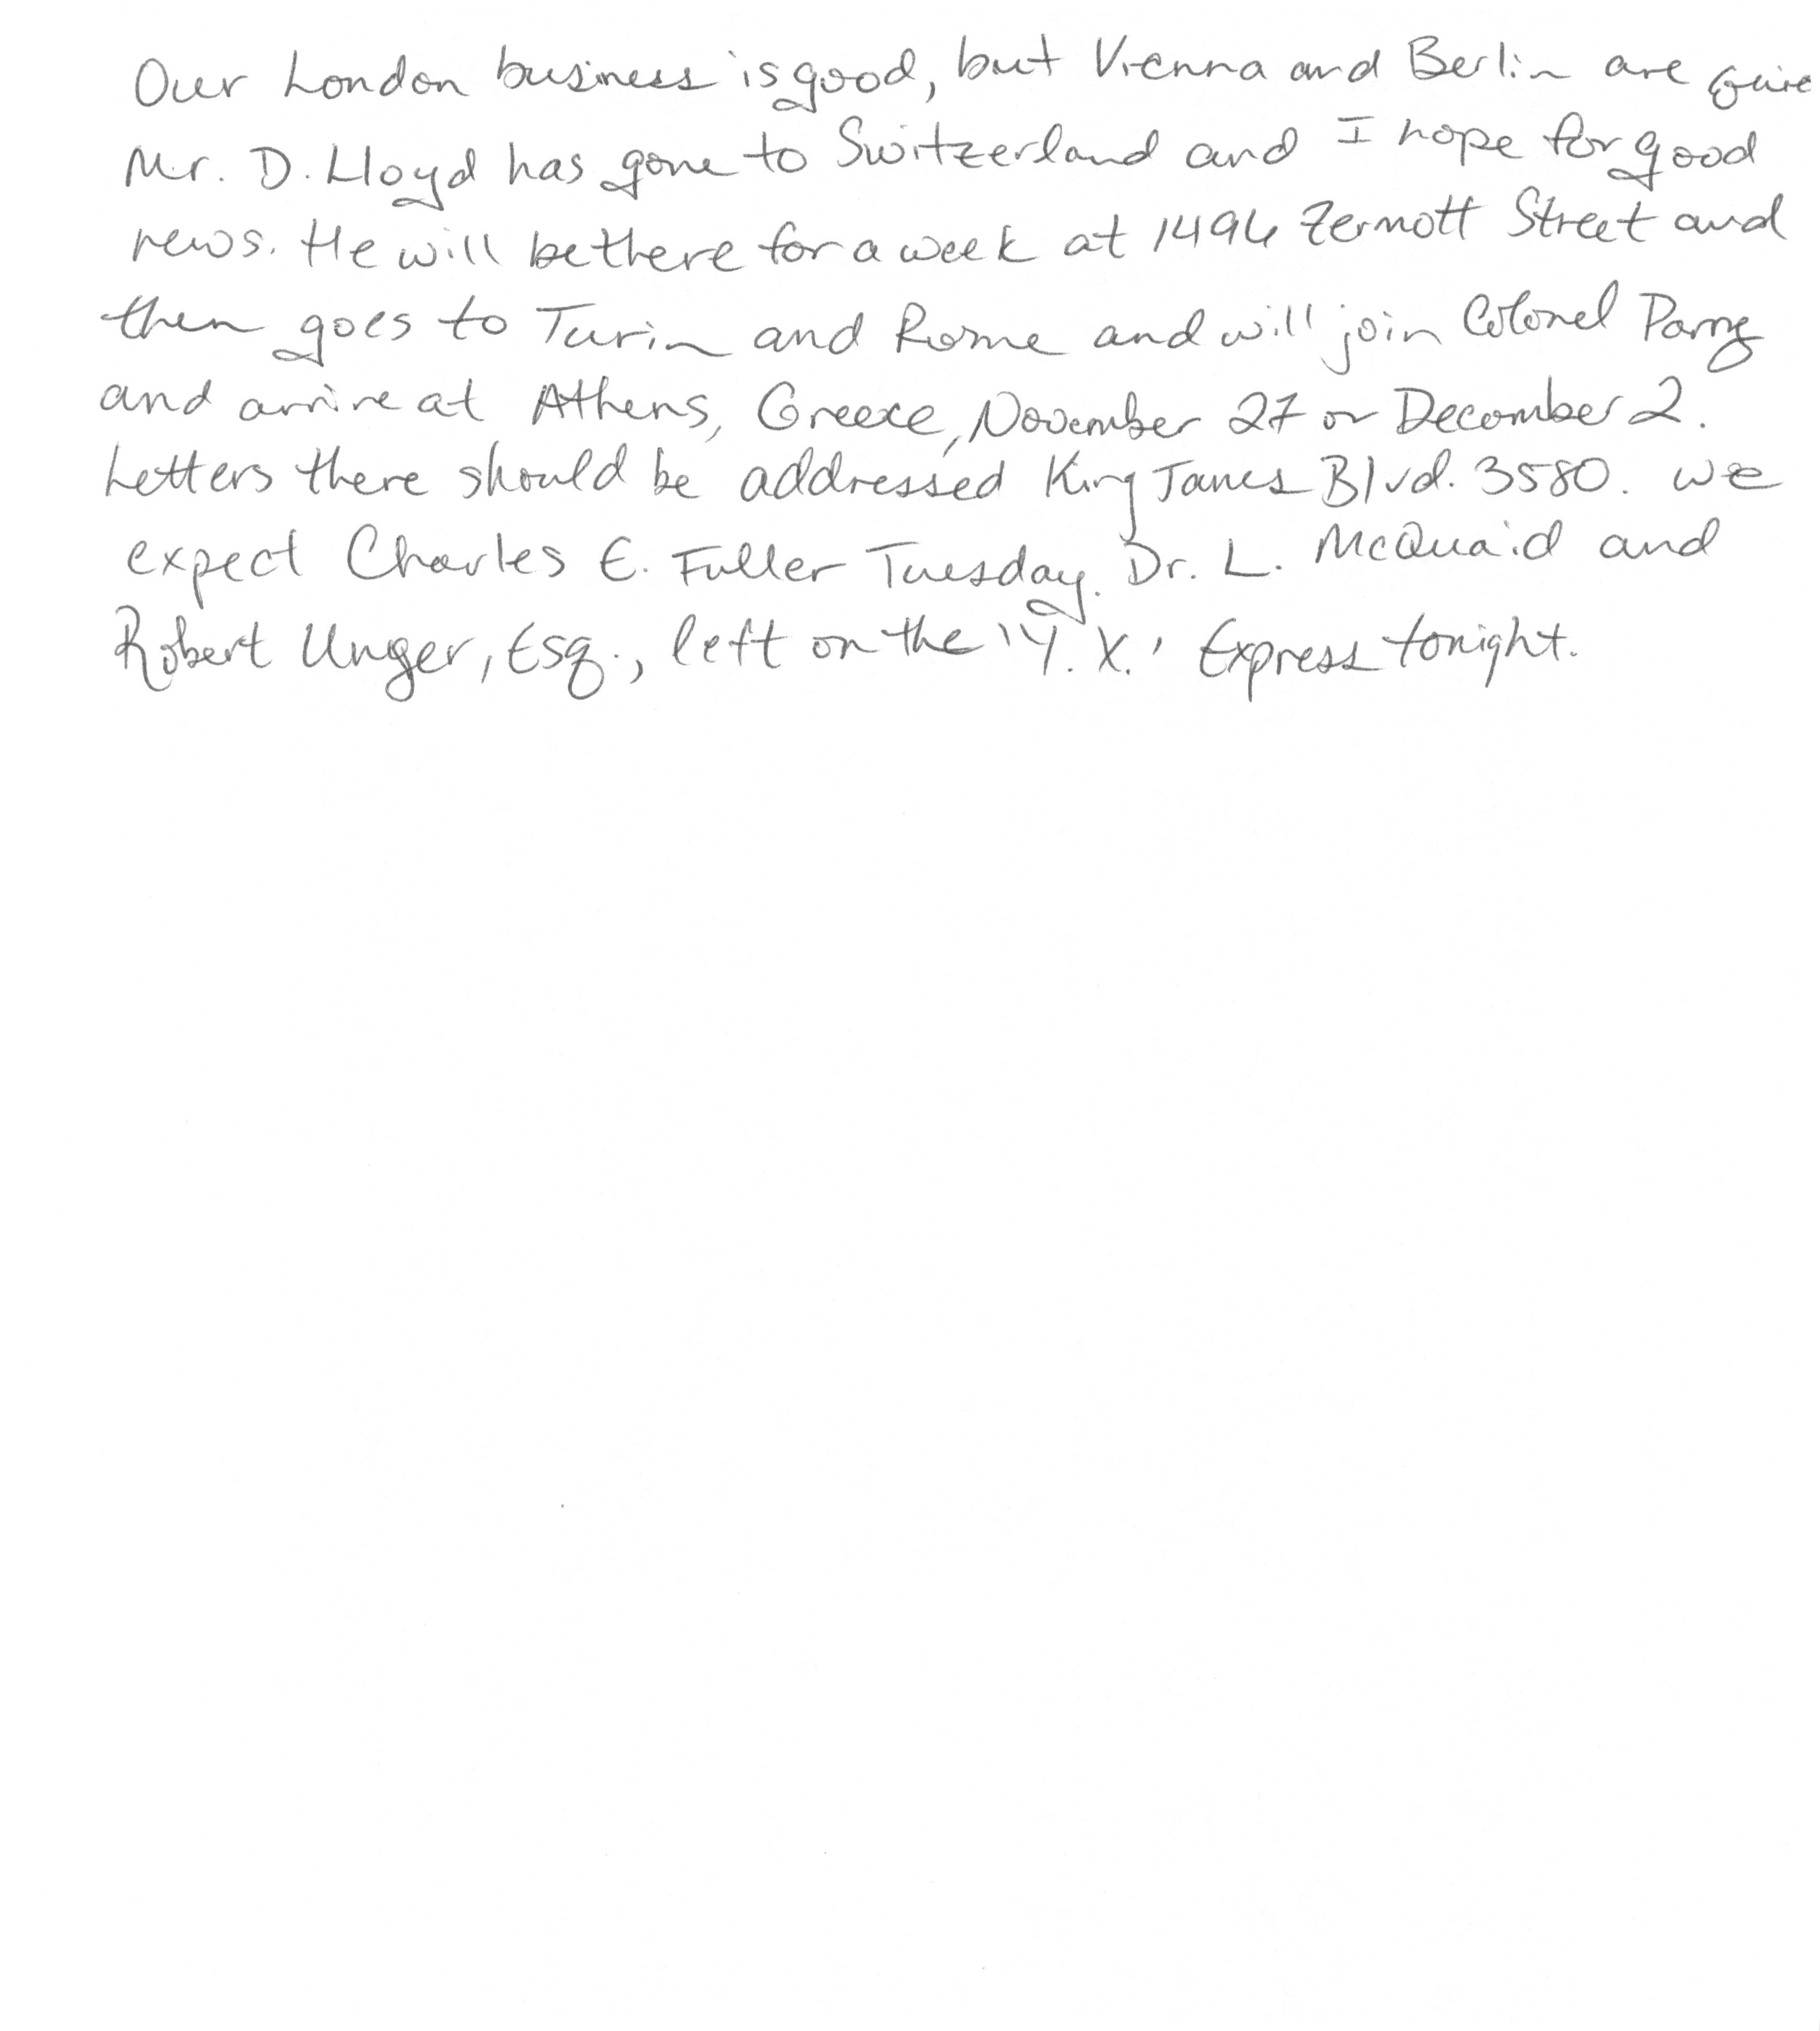 Our London business is good, but Vienna and Berlin are
Mr. D. Lloyd has gone to Switzerland and I hope for good
news. He will be there for a week at 1496 Zermott Street and
then goes to Turin and Rome and will join Colonel Parry
and arrive at Athens, Greece, November 27 or December 2.
Letters there should be addressed King James Blvd. 3580. We
expect Charles E. Fuller Tuesday. Dr. L. McQuaid and
Robert Unger, Esq., left on the 'Y. X.' Express tonight.